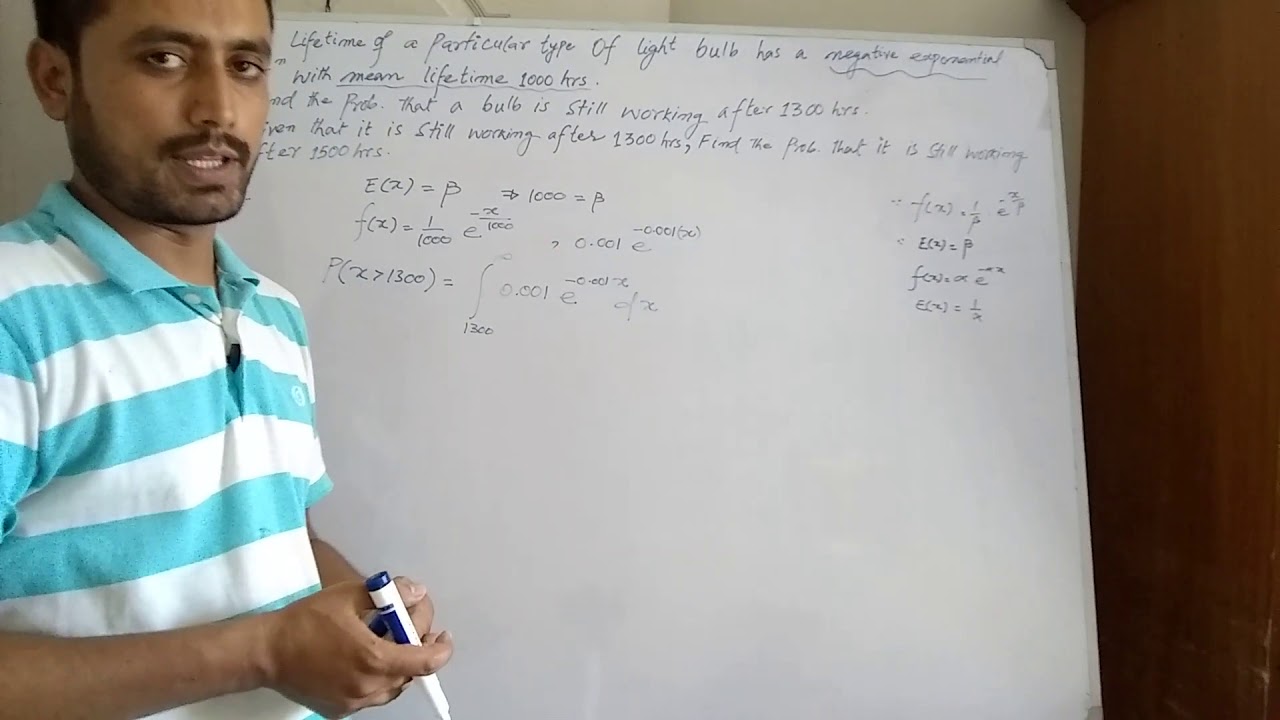 Lifetime of a particular type of light bulb has a negative exponential
n with mean lifetime 1000 hrs.
nd the Prob. that a bulb is still working after 1300 hrs.
iven that it is still working after 1300 hrs, Find the Prob. that it is still working
fter 1500 hrs.
E(x) = β ⇒ 1000 = β
f(x) = 1/1000 e^(-x/1000) , 0.001 e^(-0.001(x))
P(x>1300) = ∫_1300^∞ 0.001 e^(-0.001x) dx
∵ f(x) = 1/β e^(-x/β)
∵ E(x) = β
f(x) = α e^(-αx)
E(x) = 1/α